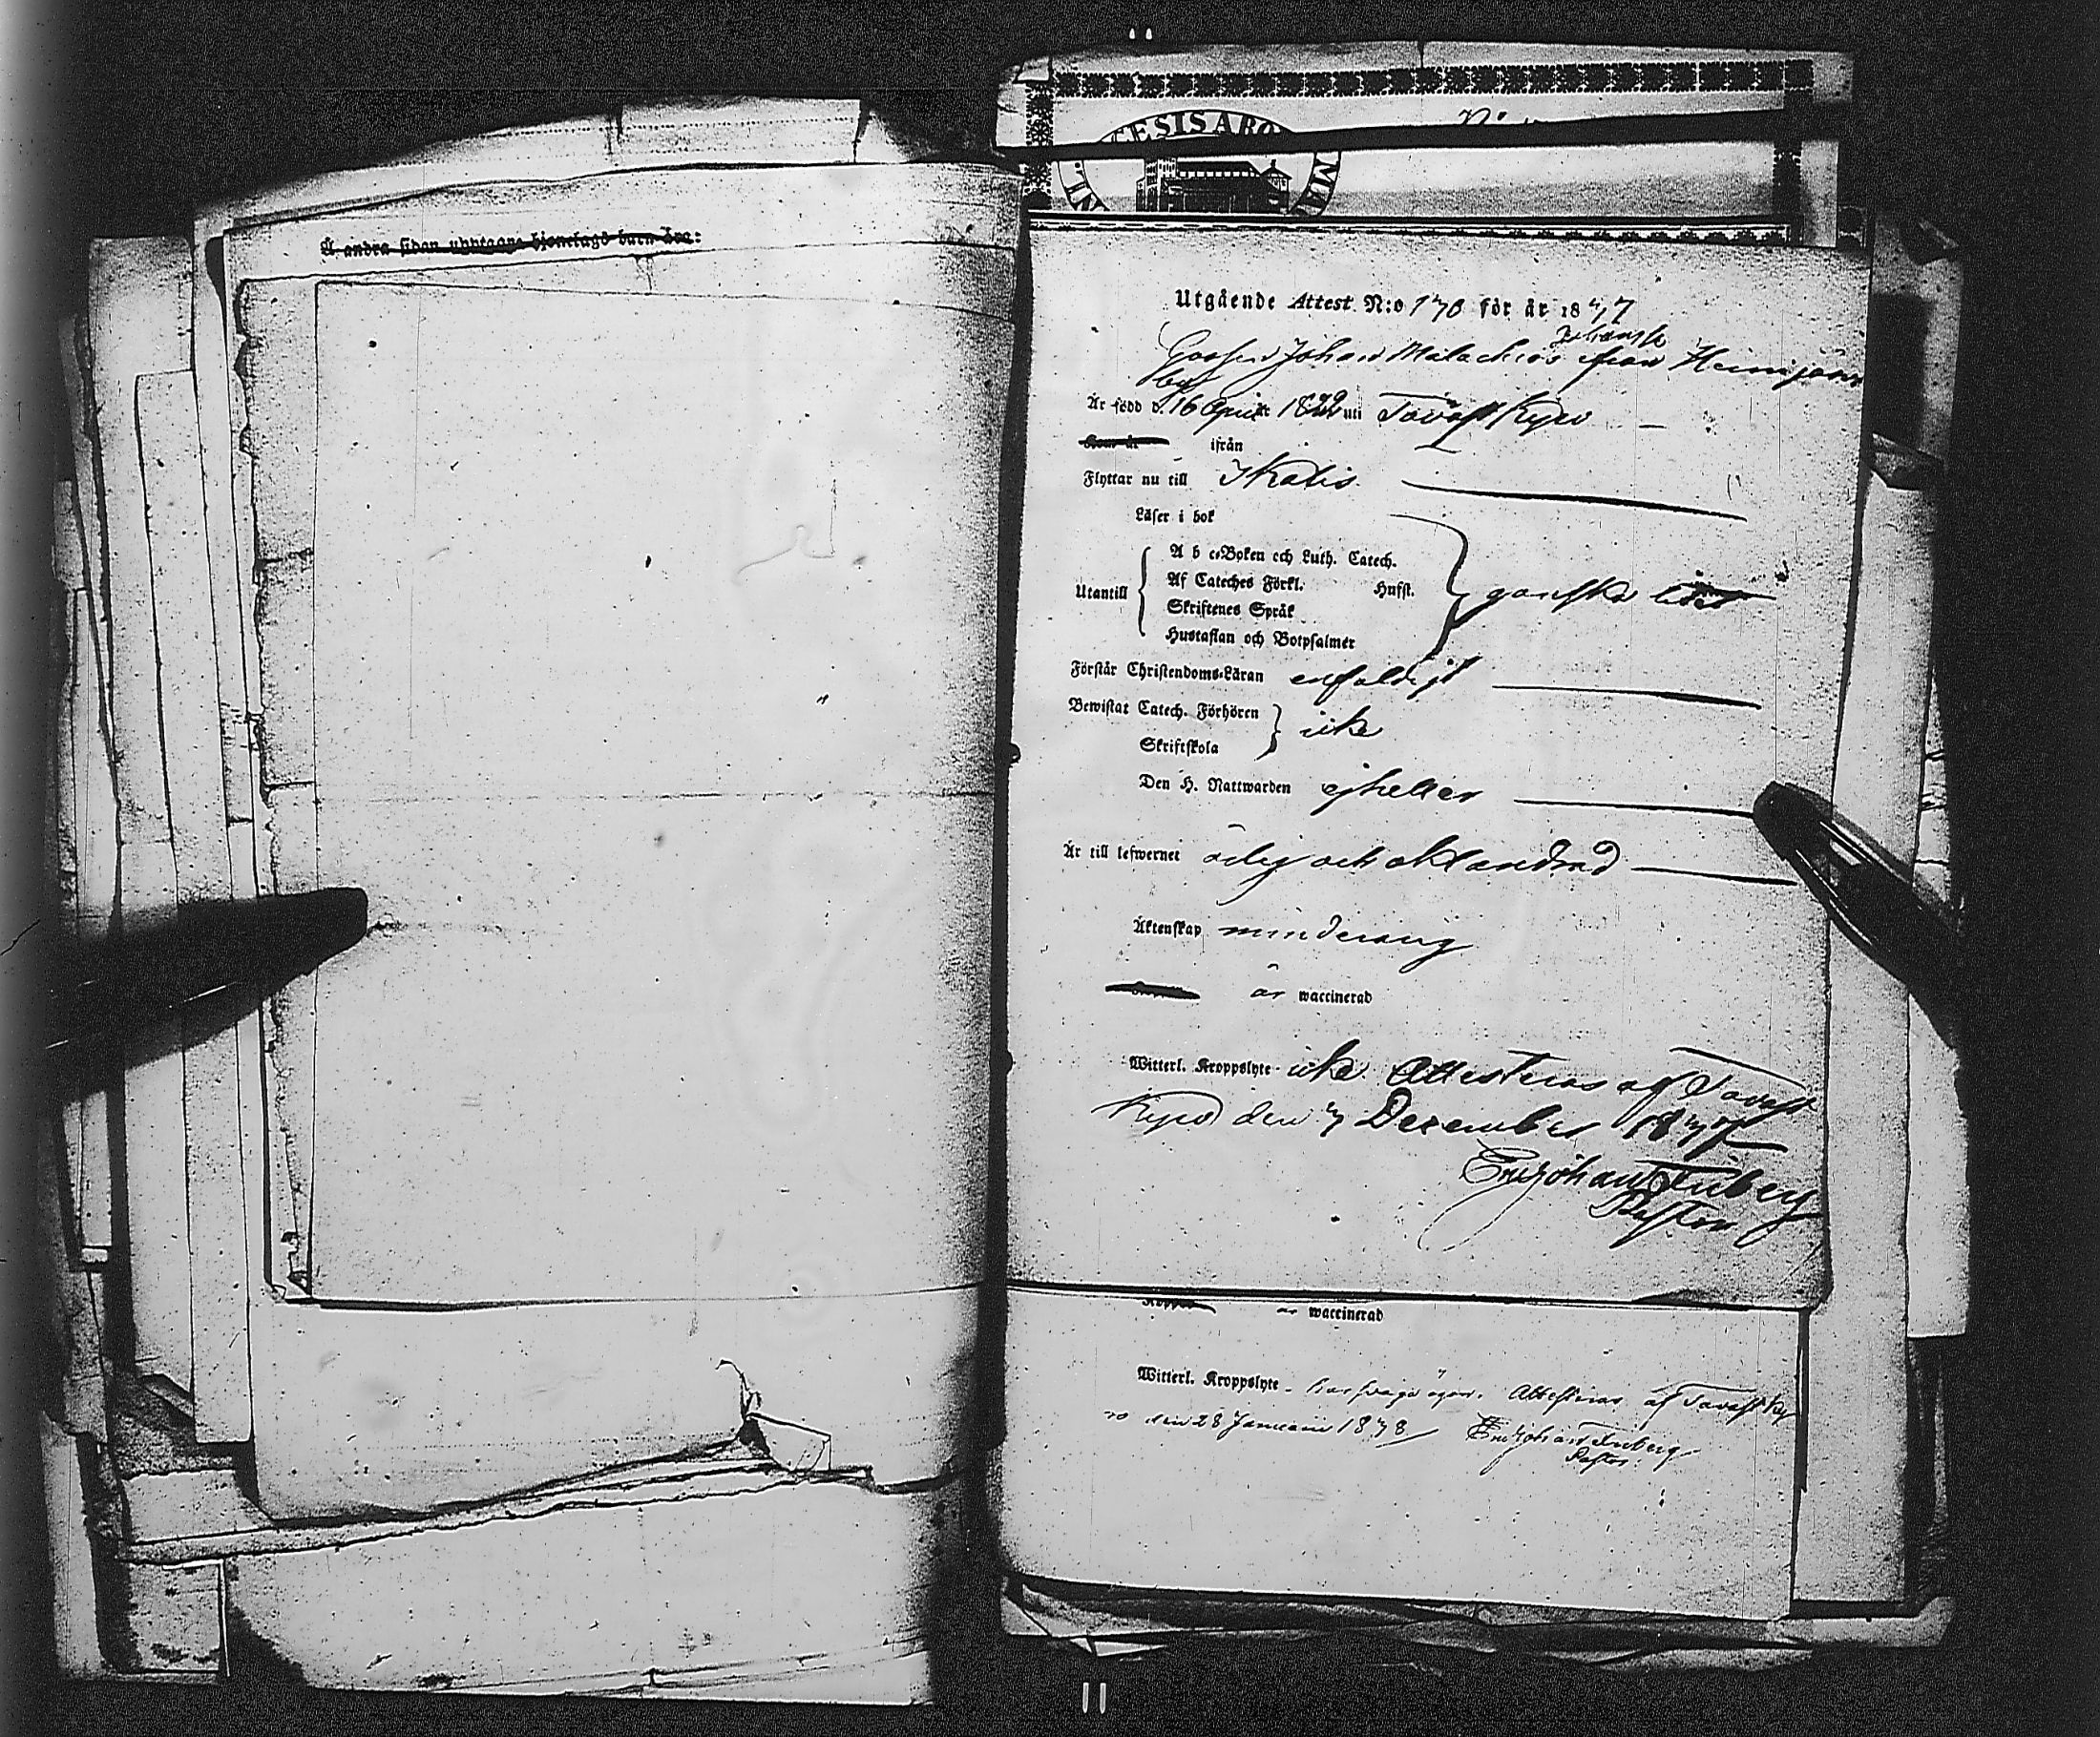 Å andra sidan upptagne hjonelags barn äro:
Utgående Attest N:o 170 för år 1877
Johansson
Gossen Johan Malachias från Heinijärvi
by
Är född d. 16 April 18 uti Tavastkyro
Kom år ifrån
Flyttar nu till Ikalis
Läser i bok
A b c-Boken och Luth. Catech.
Af Cateches Förkl. Hufst.
Utantill ganska
Skriftenes Språk
Hustaflan och Botpsalmer
Förstår Christendoms-Läran enfaldigt
Bewistat Catech. Förhören
icke
Skriftskola
Den H. Nattwarden ej heller
Är till lefwernet ärlig och oklandrad
Äktenskap minderårig
är waccinerad
Witterl. Kroppslyte icke. Attesteras af Tavast
Kyro den 7 December 1877
Johan Friberg
Pastor
är waccinerad
Witterl. Kroppslyte har svaga ögon. Attesteras af Tavastky
ro den 28 Januarii 1878 Johan Friberg
Pastor.